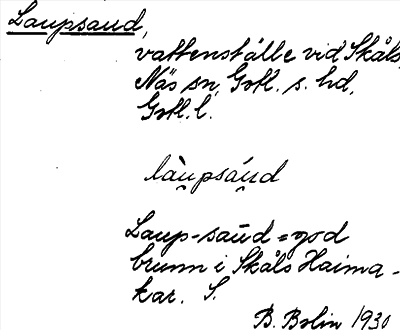 Laupsaud,
vattenställe vid Skåls,
Näs sn, Gotl. s. hd,
Gotl. l.
làu̯psáu̯d
Laup-saud = god
brunn i Skåls Haima-
kar. S.
B. Bolin 1930